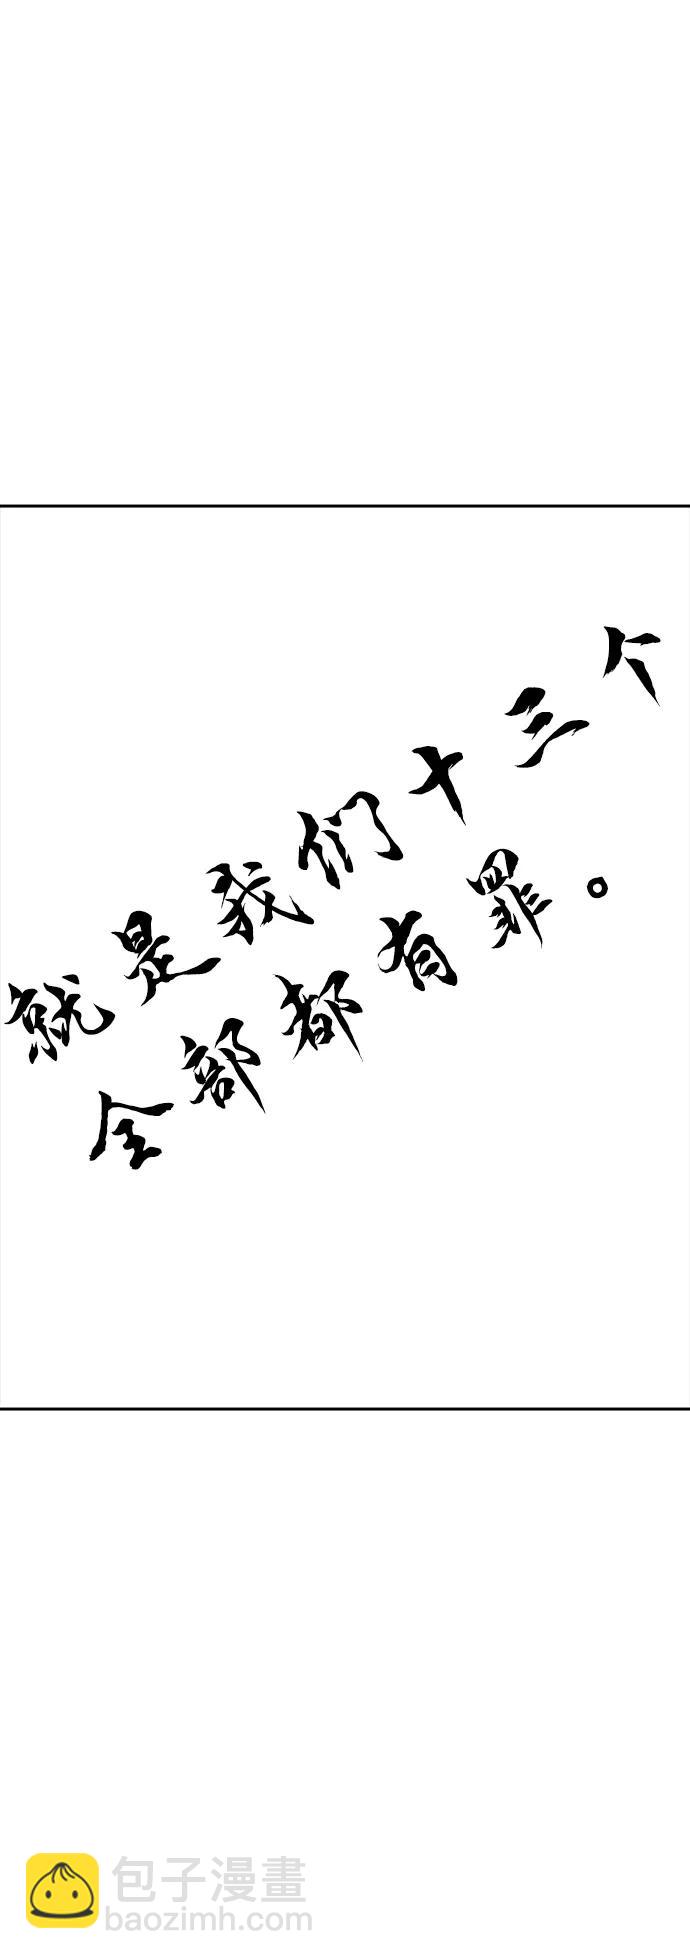 就是我们十三个
全部都有罪。
包子漫畫
baozimh.com